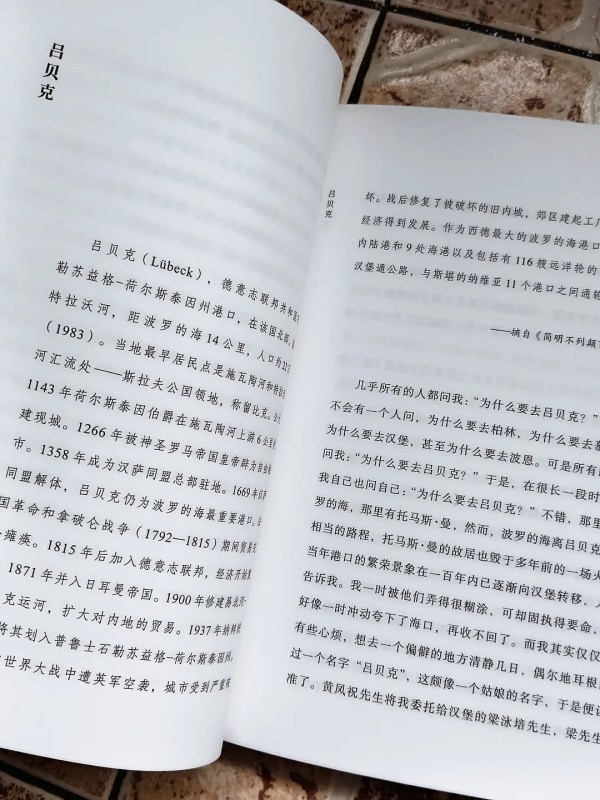 吕贝克
吕贝克（Lübeck），德意志联邦共和国
勒苏益格-荷尔斯泰因州港口，在该国北部，临
特拉沃河，距波罗的海14公里，人口约22万
（1983）。当地最早居民点是施瓦陶河和特拉沃
河汇流处——斯拉夫公国领地，称留比克。
1143年荷尔斯泰因伯爵在施瓦陶河上游6公里
建现城。1266年被神圣罗马帝国皇帝辟为自由
市。1358年成为汉萨同盟总部驻地。1669年
同盟解体，吕贝克仍为波罗的海最重要港口。
国革命和拿破仑战争（1792—1815）期间贸易
瘫痪。1815年后加入德意志联邦，经济开始
1871年并入日耳曼帝国。1900年修建易北河-
克运河，扩大对内地的贸易。1937年纳粹
将其划入普鲁士石勒苏益格-荷尔斯泰因州，
世界大战中遭英军空袭，城市受到严重
吕贝克
坏。战后修复了被破坏的旧内城，郊区建起工厂
经济得到发展。作为西德最大的波罗的海港口
内陆港和9处海港以及包括有116艘远洋轮的
汉堡通公路，与斯堪的纳维亚11个港口之间通轮
——摘自《简明不列颠
几乎所有的人都问我：“为什么要去吕贝克？”
不会有一个人问，为什么要去柏林，为什么要去
为什么要去汉堡，甚至为什么要去波恩。可是所有
问我：“为什么要去吕贝克？”于是，在很长一段时
我自己也问自己：“为什么要去吕贝克？”不错，那里
罗的海，那里有托马斯·曼，然而，波罗的海离吕贝克
相当的路程，托马斯·曼的故居也毁于多年前的一场
当年港口的繁荣景象在一百年内已逐渐向汉堡转移，
告诉我。我一时被他们弄得很糊涂，可却固执得要命，
好像一时冲动夸下了海口，再收不回了。而我其实仅仅
有些心烦，想去一个偏僻的地方清静几日，偶尔地耳根
过一个名字“吕贝克”，这颇像一个姑娘的名字，于是便
准了。黄凤祝先生将我委托给汉堡的梁泳培先生，梁先生